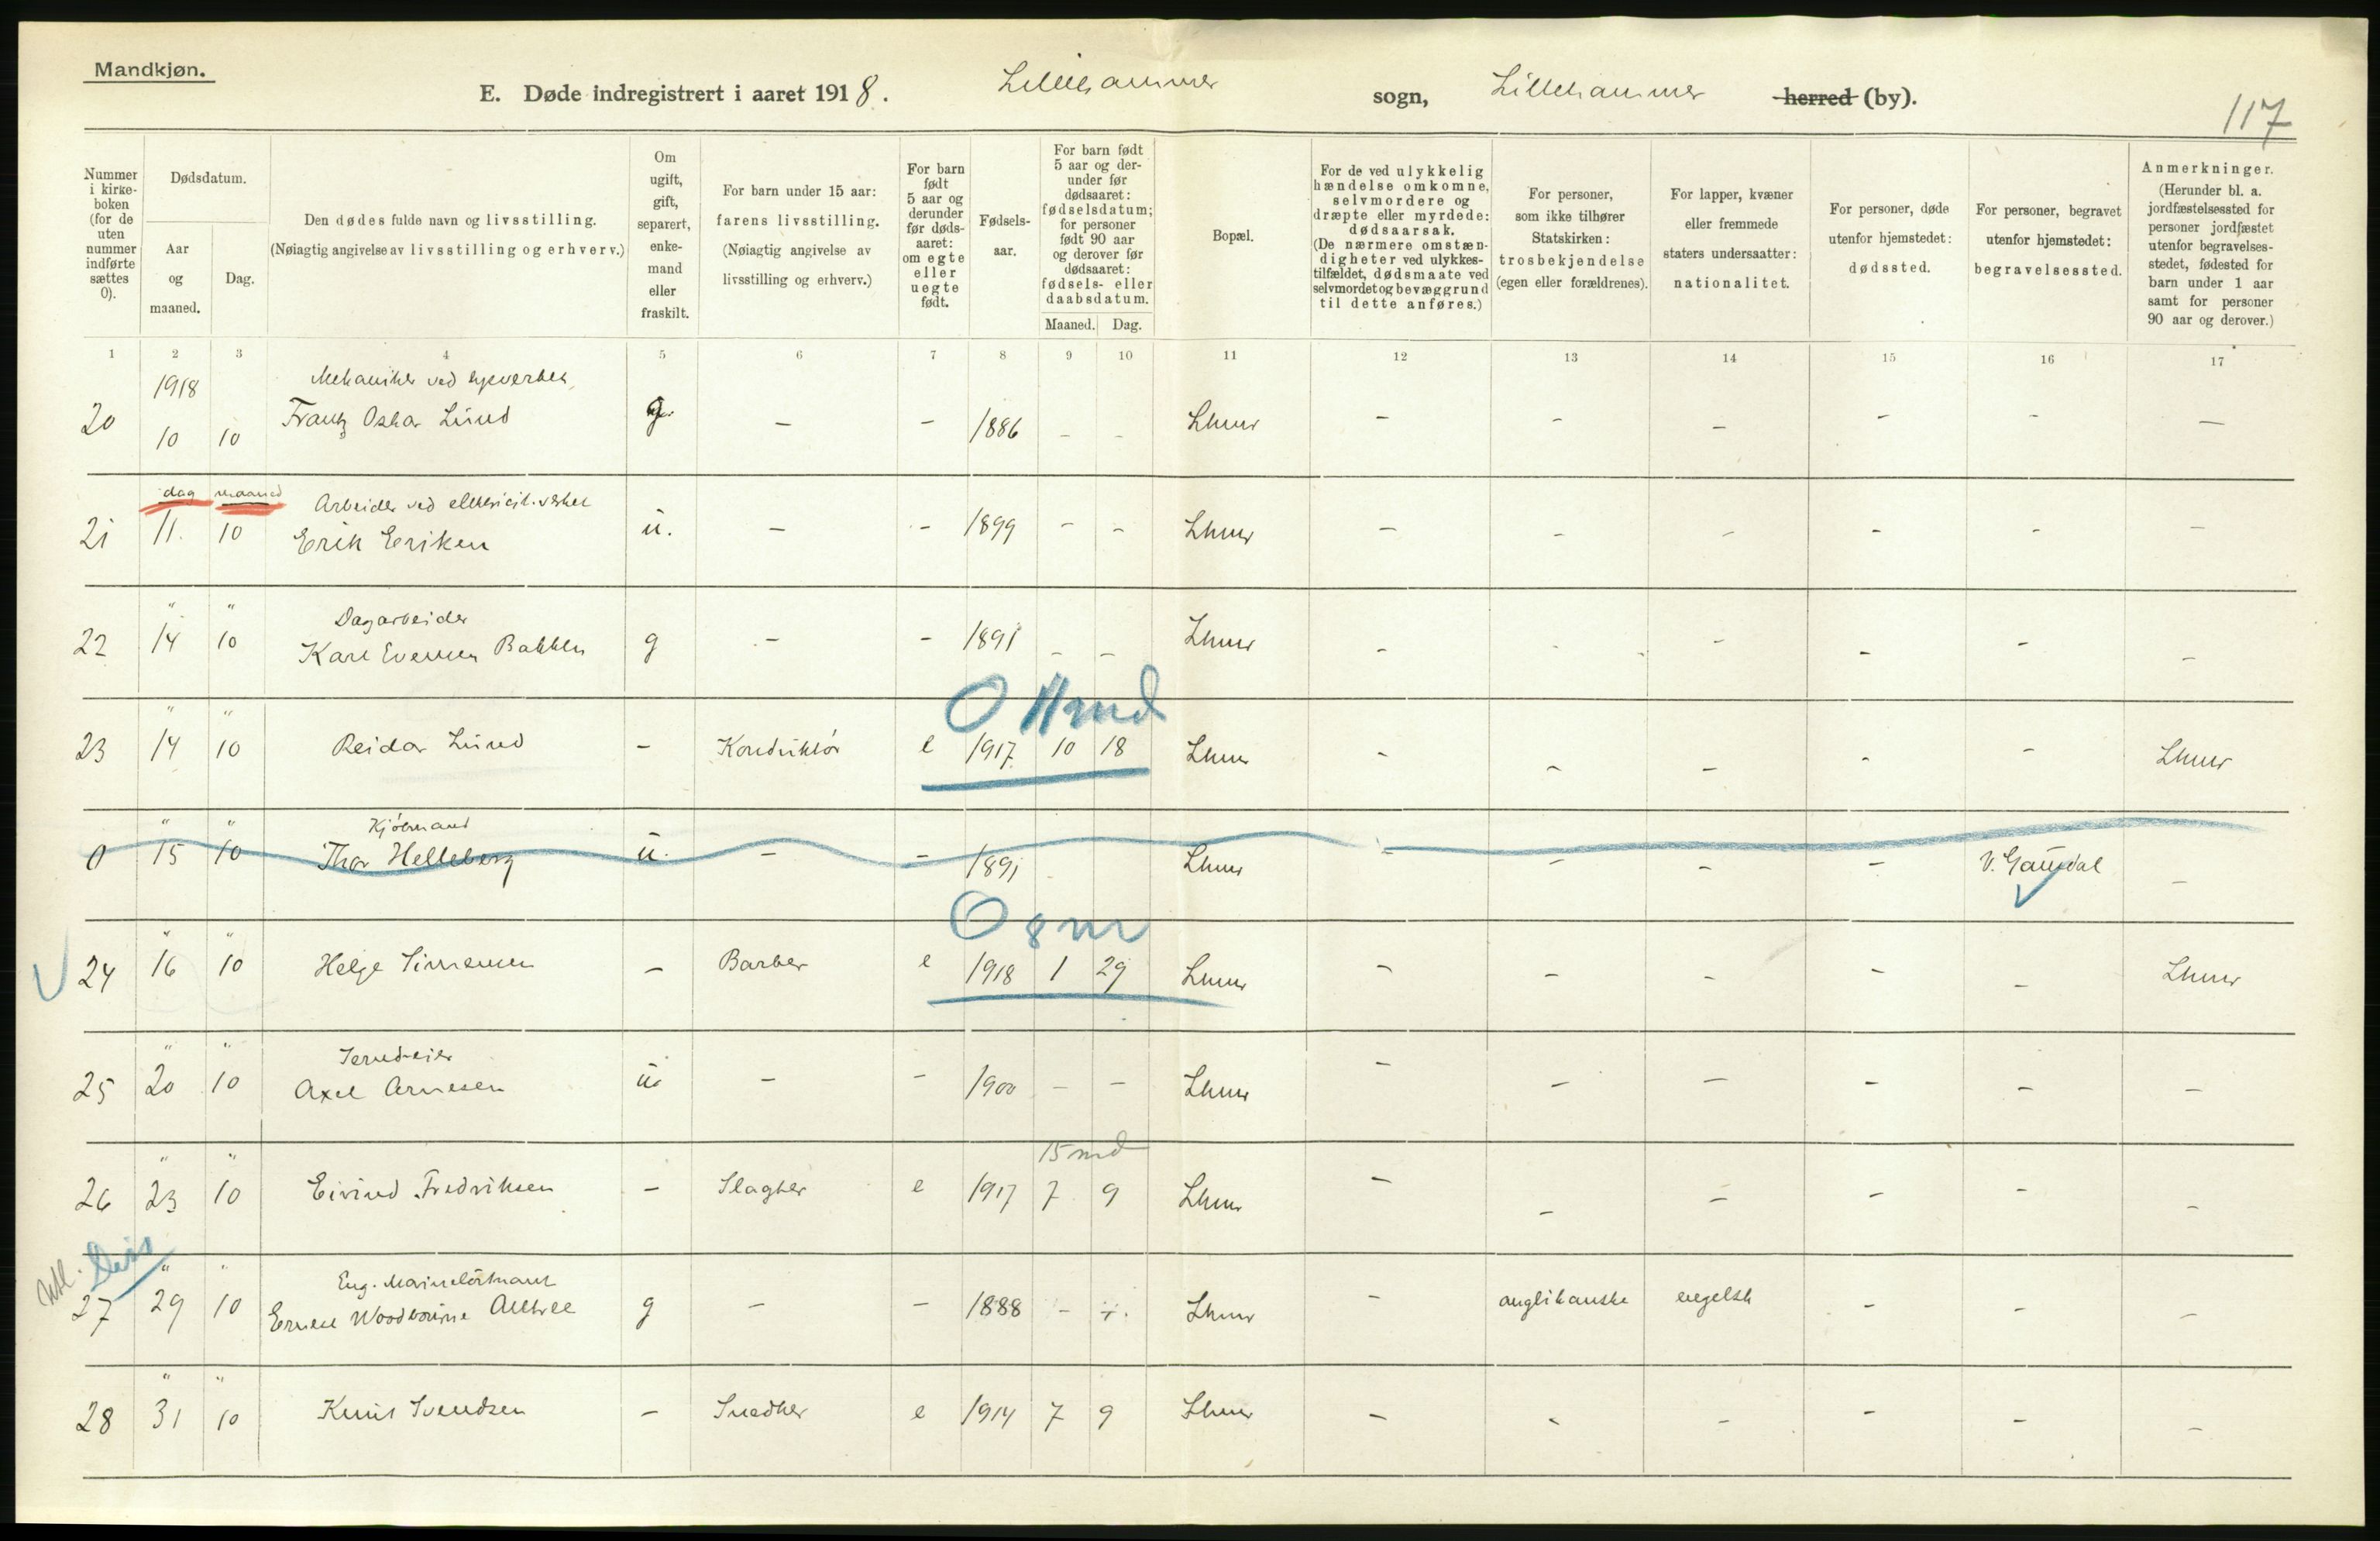 Mandkjøn.
E. Døde indregistrert i aaret 1918. Lillehammer sogn, Lillehammer herred (by).
117
Nummer i kirke-boken (for de uten nummer indførte sættes 0).
Dødsdatum.
Aar og maaned.
Dag.
Den dødes fulde navn og livsstilling.
(Nøiagtig angivelse av livsstilling og erhverv.)
Om ugift, gift, separert, enke-mand eller fraskilt.
For barn under 15 aar: farens livsstilling.
(Nøiagtig angivelse av livsstilling og erhverv.)
For barn født 5 aar og derunder før døds-aaret: om egte eller uegte født.
Fødsels-aar.
For barn født 5 aar og der-under før dødsaaret: fødselsdatum; for personer født 90 aar og derover før dødsaaret: fødsels- eller daabsdatum.
Maaned. Dag.
Bopæl.
For de ved ulykkelig hændelse omkomne, selvmordere og dræpte eller myrdede: dødsaarsak.
(De nærmere omstæn-digheter ved ulykkes-tilfældet, dødsmaate ved selvmordet og bevæggrund til dette anføres.)
For personer, som ikke tilhører Statskirken: trosbekjendelse (egen eller forældrenes).
For lapper, kvæner eller fremmede staters undersaatter: nationalitet.
For personer, døde utenfor hjemstedet: dødssted.
For personer, begravet utenfor hjemstedet: begravelsessted.
Anmerkninger.
(Herunder bl. a. jordfæstelsessted for personer jordfæstet utenfor begravelses-stedet, fødested for barn under 1 aar samt for personer 90 aar og derover.)
1 2 3 4 5 6 7 8 9 10 11 12 13 14 15 16 17
1918 Mekaniker ved
20 10 10 Frantz Oskar Lund g. - - 1886 - - Lhmr - - - - - -
dag maaned Arbeider ved elektricit.verket
21 11. 10 Erik Eriksen u. - - 1899 - - Lhmr - - - - - -
" " Dagarbeider
22 14 10 Karl Evensen Bakken g - - 1891 - - Lhmr - - - - - -
0 11 md
" "
23 14 10 Reidar Lund - Konduktør e 1917 10 18 Lhmr - - - - - Lhmr
" " Kjøbmand
0 15 10 Thor Helleberg u. - - 1891 - Lhmr - - - - V. Gausdal -
0 8 m
" "
24 16 10 Helge Simensen - Barber e 1918 1 29 Lhmr - - - - - Lhmr
" "
25 20 10 Axel Arnesen u. - - 1900 - - Lhmr - - - - - -
15 md
" "
26 23 10 Eivind Fredriksen - Slagter e 1917 7 9 Lhmr - - - - - -
utl. Diss
" " Eng. Marineløitnant
27 29 10 Woodbourne g - - 1888 - - Lhmr - anglikanske engelsk - - -
" "
28 31 10 Knut Svendsen - Snedker e 1914 7 9 Lhmr - - - - - -